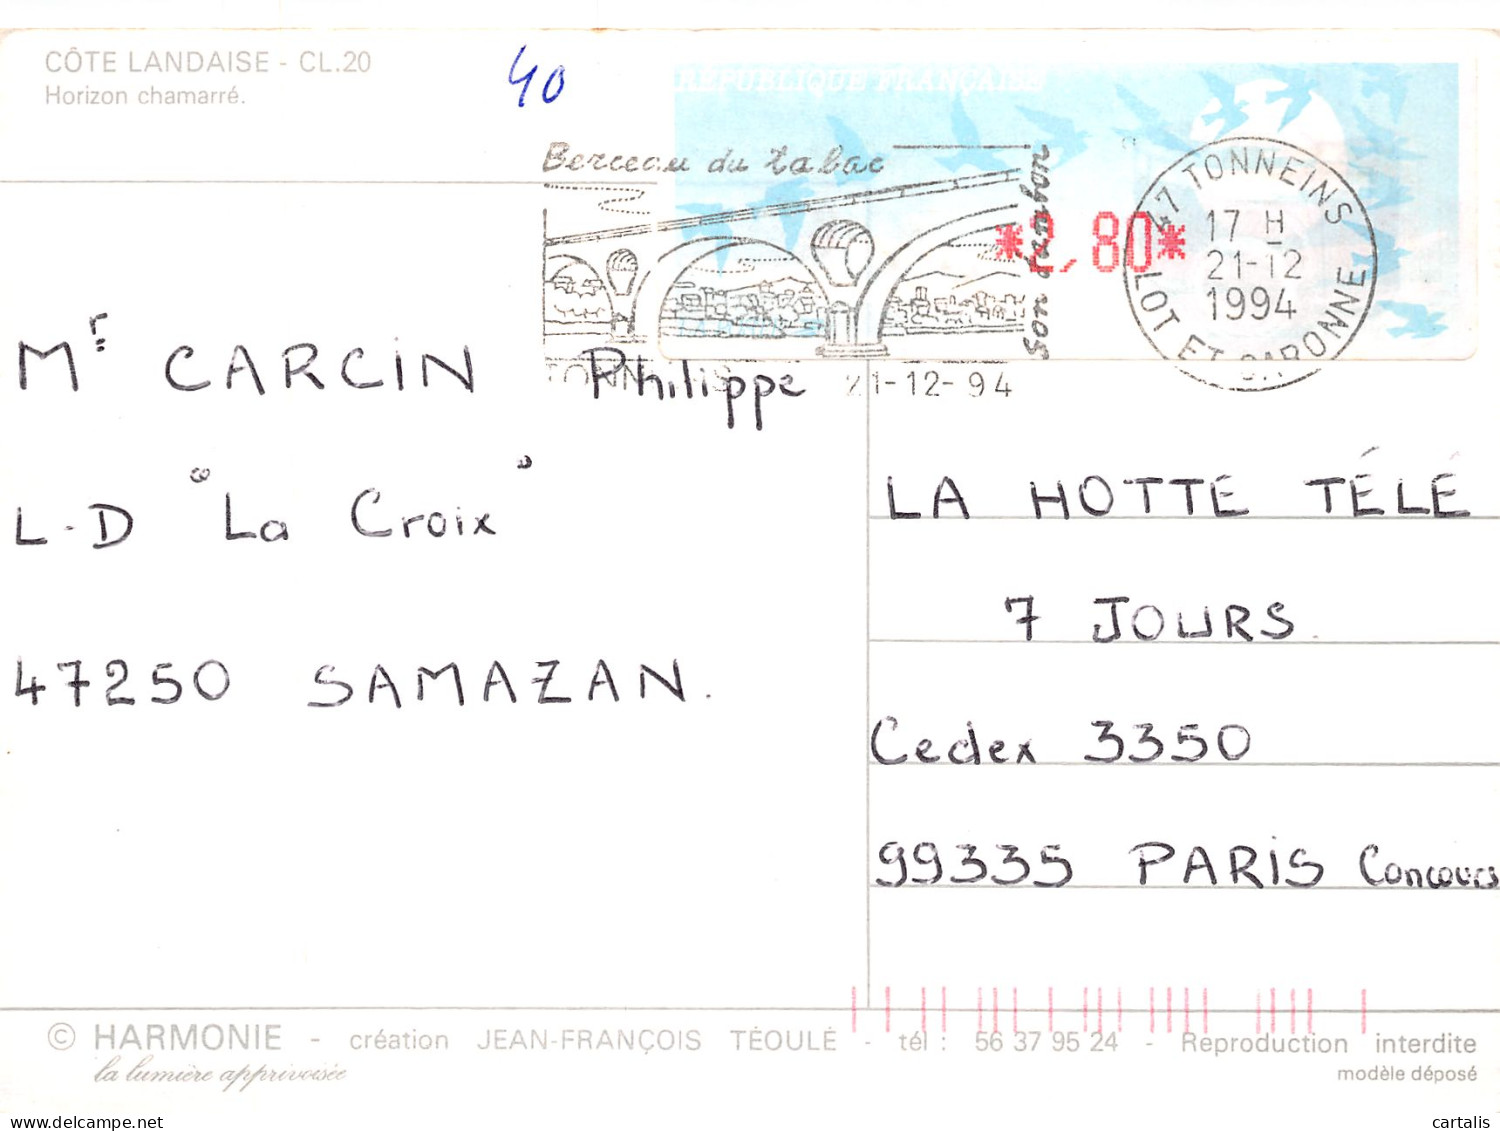 CÔTE LANDAISE - CL.20
Horizon chamarré.
40
RÉPUBLIQUE FRANÇAISE
Berceau du tabac
son jambon
*2,80*
47 TONNEINS
17 H
21-12
1994
LOT ET GARONNE
TONNEINS 21-12-94
Mr CARCIN Philippe
L-D "La Croix"
47250 SAMAZAN.
LA HOTTE TÉLÉ
7 JOURS.
Cedex 3350
99335 PARiS Concours
© HARMONIE - création JEAN-FRANÇOIS TÉOULÉ - tél : 56 37 95 24 - Reproduction interdite
la lumière apprivoisée
modèle déposé
cartalis